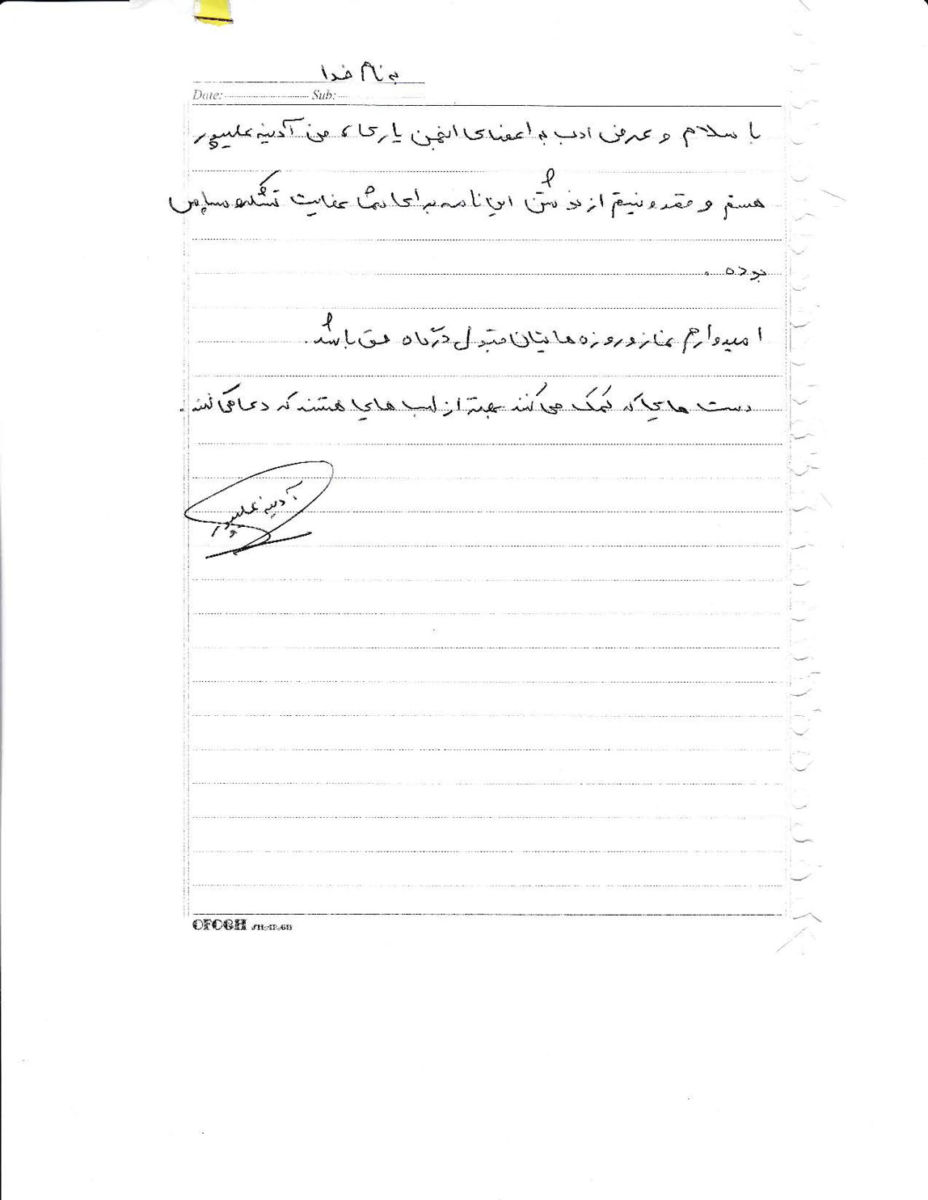 به نام خدا
Date: Sub:
با سلام و عرض ادب به اعضای انجمن یاری، من آدینه علیپور
هستم و مقدونیتم از نوشتن این نامه برای شما عنایت تشکر و سپاس
بوده .
امیدوارم نماز و روزه هایتان مقبول درگاه حق باشد.
دست هایی که کمک می کنند بهتر از لب های هستند که دعا می کنند .
آدینه علیپور
OFOGH